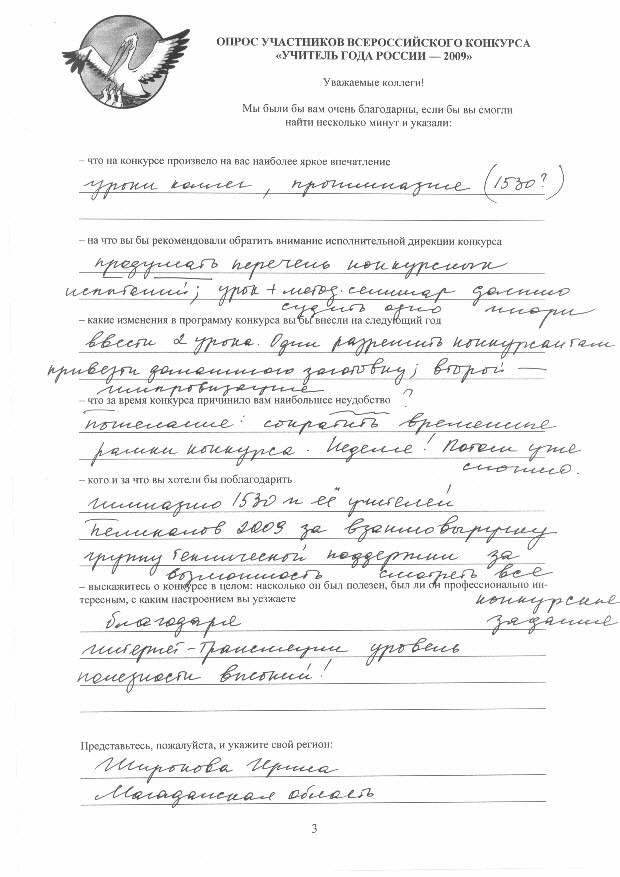 ОПРОС УЧАСТНИКОВ ВСЕРОССИЙСКОГО КОНКУРСА
«УЧИТЕЛЬ ГОДА РОССИИ — 2009»
Уважаемые коллеги!
Мы были бы вам очень благодарны, если бы вы смогли
найти несколько минут и указали:
– что на конкурсе произвело на вас наиболее яркое впечатление
уроки коллег, прогимназия (1530?)
– на что вы бы рекомендовали обратить внимание исполнительной дирекции конкурса
продумать перечень конкурсных
испытаний; урок + метод. семинар должно
судить одно жюри
– какие изменения в программу конкурса вы бы внесли на следующий год
ввести 2 урока. Один разрешить конкурсантам
привезти домашнюю заготовку; второй —
импровизация
– что за время конкурса причинило вам наибольшее неудобство ?
пожелание: сократить временные
рамки конкурса. Неделя! Потом уже
сложно.
– кого и за что вы хотели бы поблагодарить
гимназию 1530 и её учителей
Пеликанов 2009 за взаимовыручку
группу технической поддержки за
возможность смотреть все
– выскажитесь о конкурсе в целом: насколько он был полезен, был ли он профессионально ин-
тересным, с каким настроением вы уезжаете
конкурсные
задания
благодаря
интернет-трансляции уровень
полезности высокий!
Представьтесь, пожалуйста, и укажите свой регион:
Широкова Ирина
Магаданская область
3